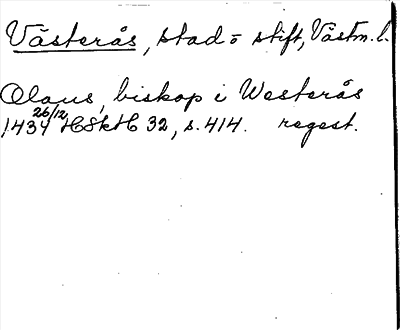 Västerås, stad o stift, Västm. l.
Olaus, biskop i Westerås
1434 26/12 HSkH 32, s. 414. regest.